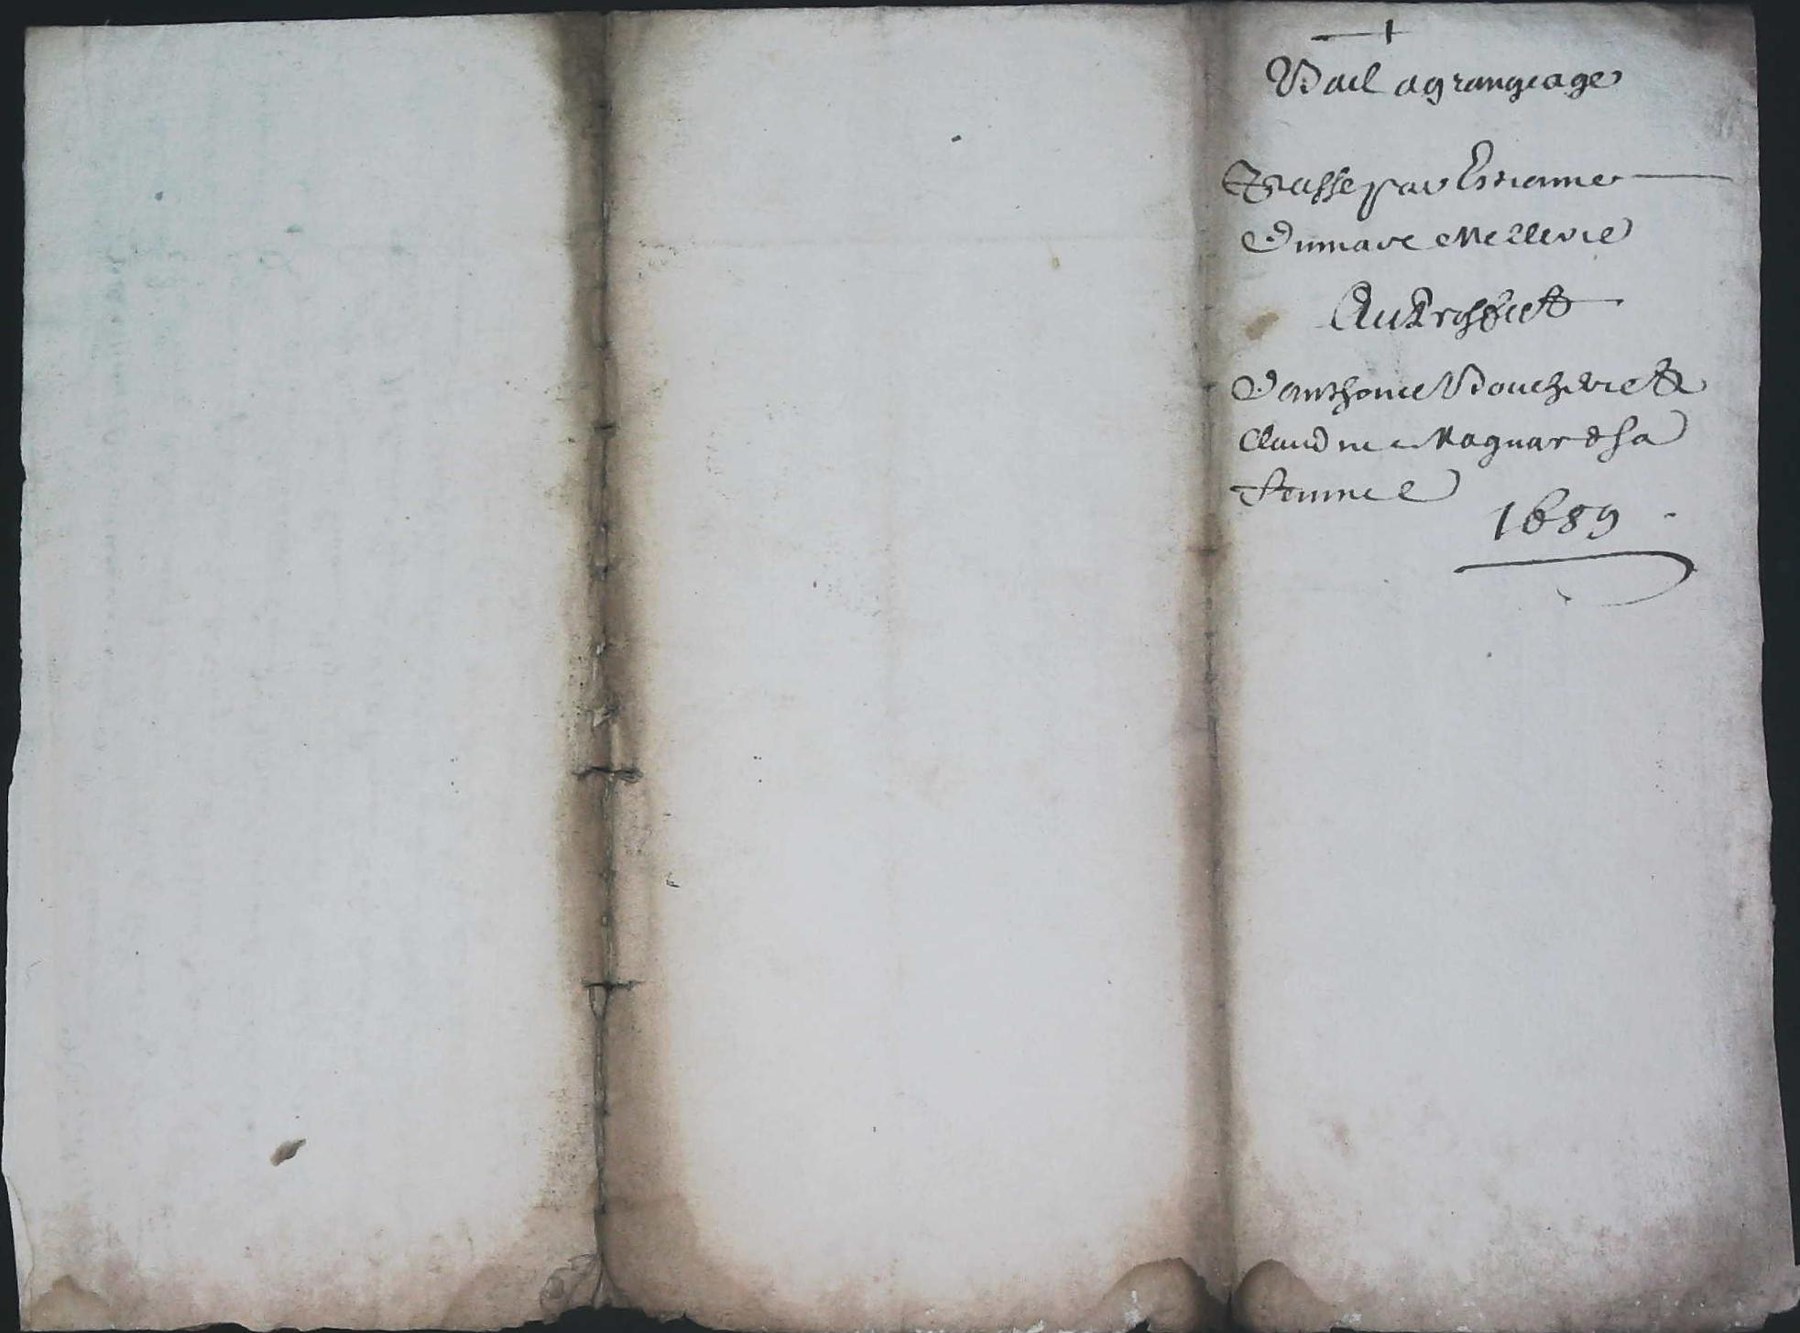 Bail a grangeage
Passe par Estienne
Au Proffict
D'anthoine Bouchet et
Claudine Magnard sa
femme
1689